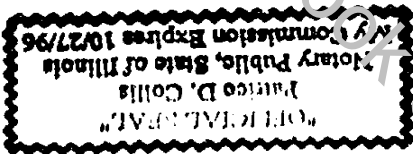 "OFFICIAL SEAL"
D. Collis
Notary Public, State of Illinois
My Commission Expires 10/27/96